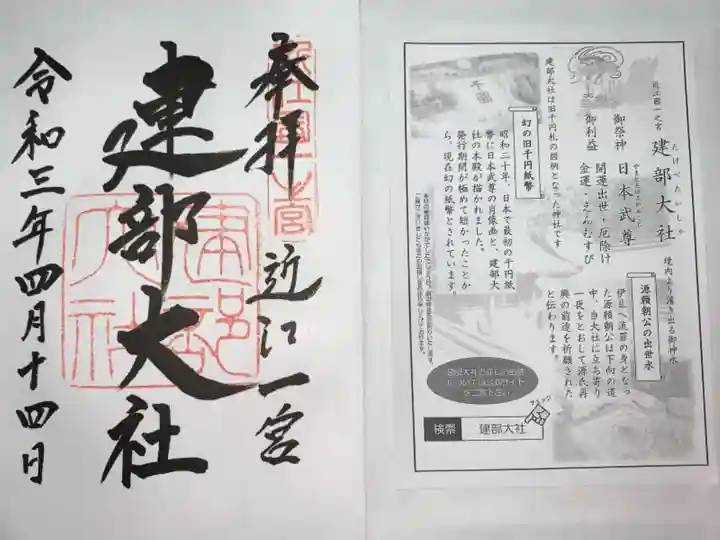 奉拝
近江一宮
建部大社
令和三年四月十四日
近江國一之宮
建部大社
たけべたいしゃ
御祭神 日本武尊
御利益 開運出世・厄除け
金運・えんむすび
建部大社は旧千円札の図柄となった神社です
幻の旧千円紙幣
昭和二十年、日本で最初の千円紙
幣に日本武尊の肖像画と、建部大
社の本殿が描かれました。
発行期間が極めて短かったことか
ら、現在幻の紙幣とされています。
境内より湧き出る御神水
源頼朝公の出世水
伊豆へ流罪の身となっ
た源頼朝公は下向の道
中、当大社に立ち寄り
一夜をとおして源氏再
興の前途を祈願された
と伝わります。
検索 建部大社